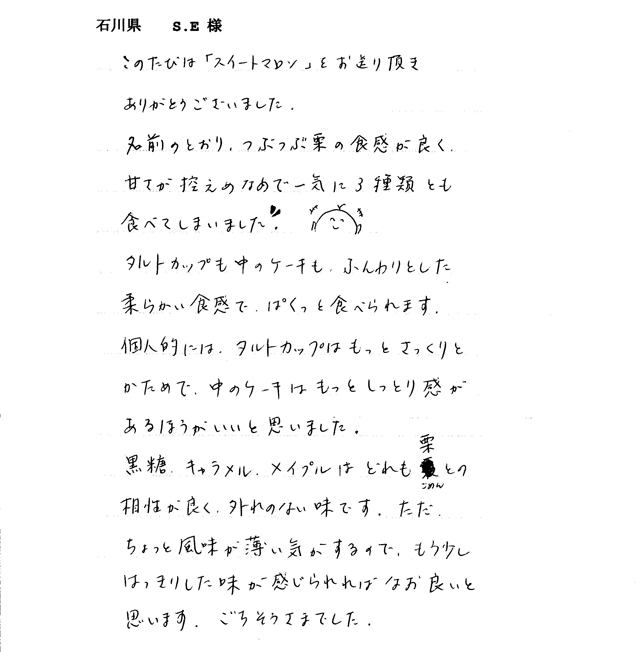 石川県　S.E 様
このたびは「スイートマロン」をお送り頂き
ありがとうございました.
名前のとおり、つぶつぶ栗の食感が良く、
甘さが控えめなので一気に3種類とも
食べてしまいました!
タルトカップも中のケーキも、ふんわりとした
柔らかい食感で、ぱくっと食べられます.
個人的には、タルトカップはもっとさっくりと
かためで、中のケーキはもっとしっとり感が
あるほうがいいと思いました。
栗
黒糖、キャラメル、メイプルはどれも との
ごめん
相性が良く、外れのない味です. ただ、
ちょっと風味が薄い気がするので、もう少し
はっきりした味が感じられればなお良いと
思います. ごちそうさまでした.